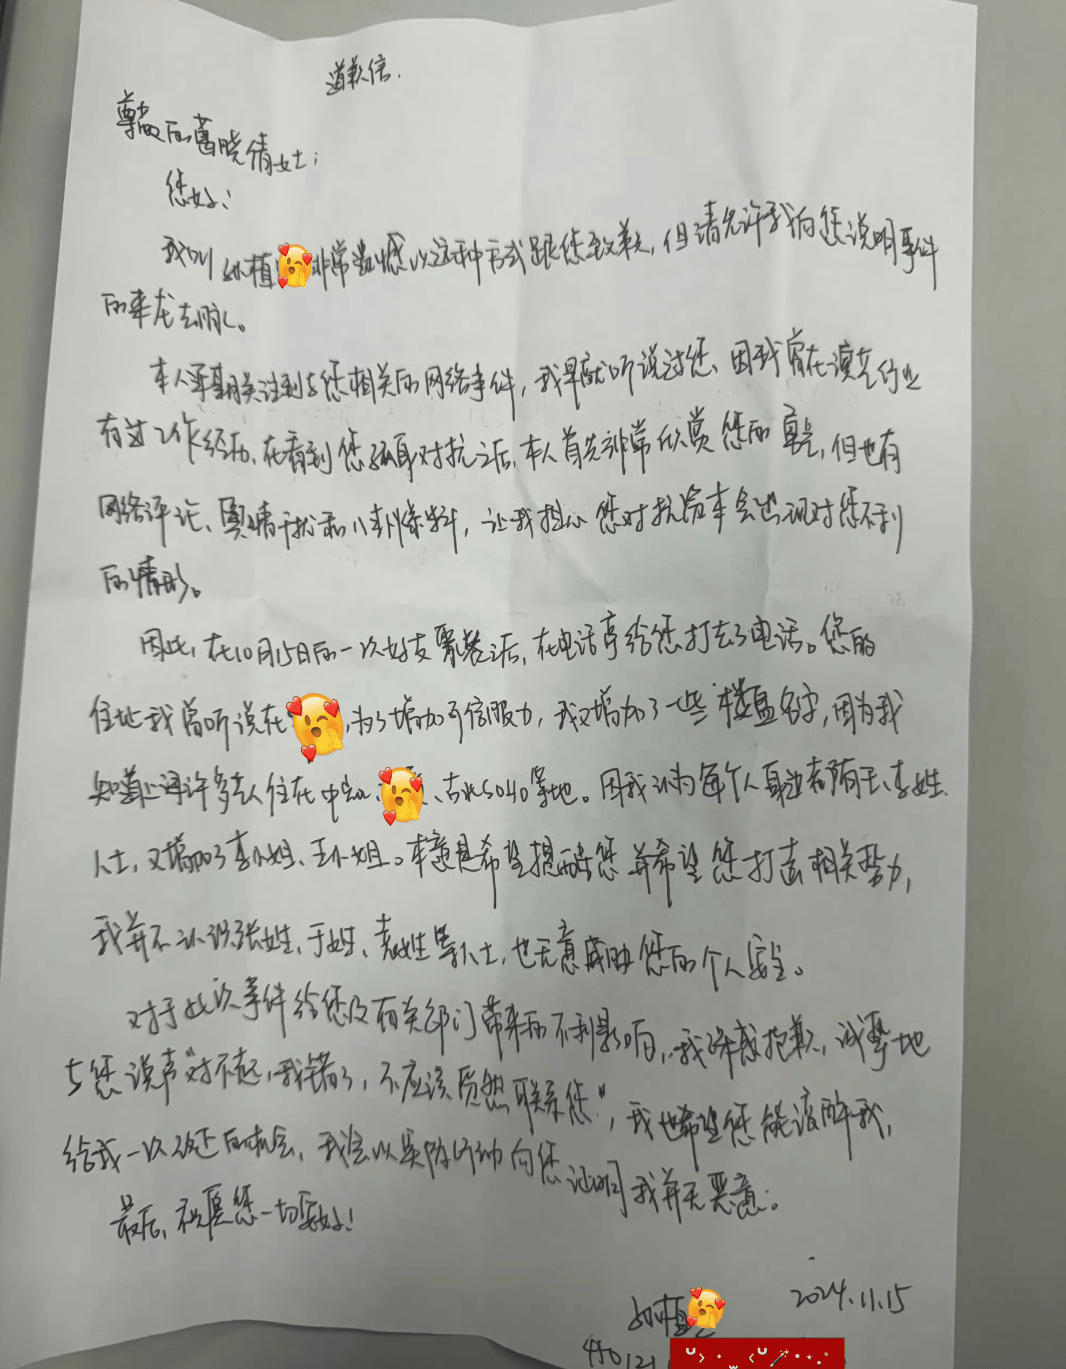 道歉信.
尊敬的葛晓倩女士:
您好!
我叫 植 非常遗憾以这种方式跟您致歉,但请允许我向您说明事件
的来龙去脉。
本人早期关注到与您相关的网络事件,我早就听说过您、因我曾在演艺行业
有过工作经历、在看到您孤身对抗之后,本人首先非常欣赏您的勇气,但也有
网络评论、舆情干扰和八卦爆料,让我担心您对抗资本会出现对您不利
的情形。
因此,在10月15日的一次好友聚餐之后,在电话亭给您打去了电话。您的
住址我曾听说在 ,为了增加可信服力,我又增加了一些楼盘名字,因为我
知道上海许多艺人住在中 、 、古北SOHO等地。因我认为每个人身边都有王、李姓
人士,又增加了李小姐、王小姐。本意是希望提醒您并希望您打击相关势力,
我并不认识张姓、于姓、袁姓等人士,也无意威胁您的个人安全。
对于此次事件给您及有关部门带来的不利影响,我深感抱歉,诚挚地
与您说声“对不起,我错了,不应该贸然联系您”,我也希望您能谅解我,
给我一次改正的机会,我会以实际行动向您证明我并无恶意。
最后,祝愿您一切安好!
植 2024.11.15